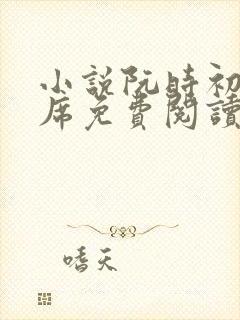 小說阮時初
席免費閱讀
嗜天